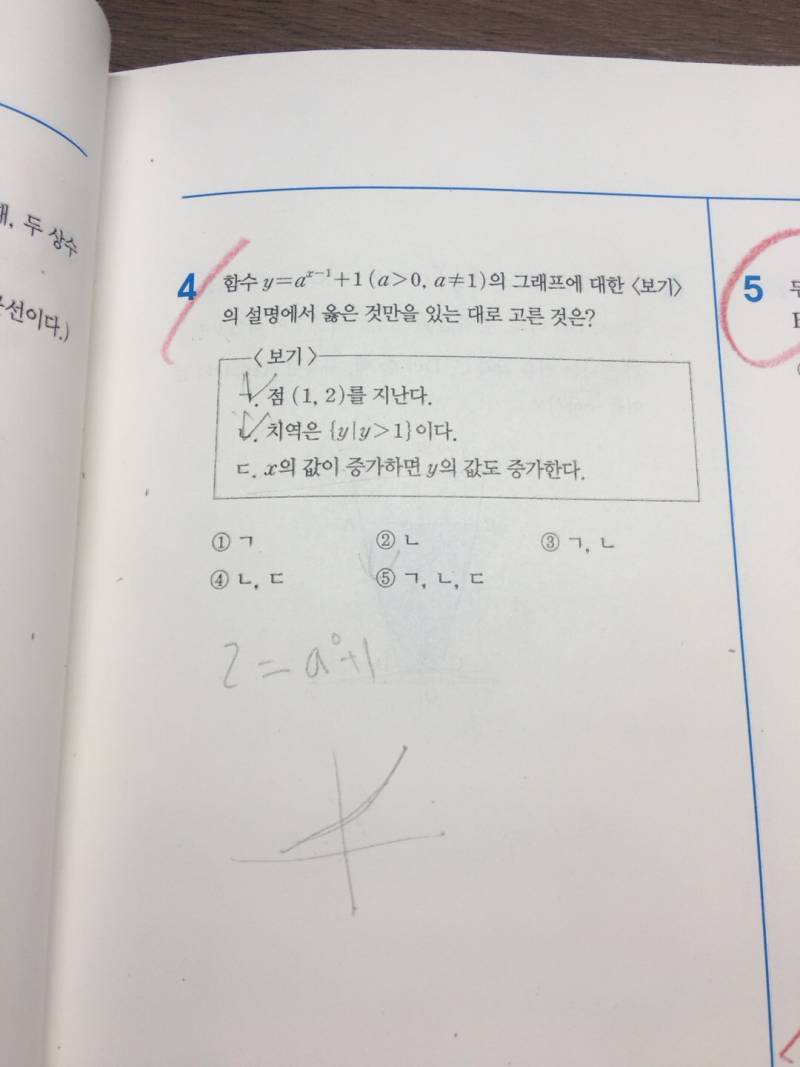 때, 두 상수
선이다.)
4 함수 y=aˣ⁻¹+1 (a>0, a≠1)의 그래프에 대한 〈보기〉
의 설명에서 옳은 것만을 있는 대로 고른 것은?
〈보기〉
ㄱ. 점 (1, 2)를 지난다.
ㄴ. 치역은 {y|y>1}이다.
ㄷ. x의 값이 증가하면 y의 값도 증가한다.
① ㄱ ② ㄴ ③ ㄱ, ㄴ
④ ㄴ, ㄷ ⑤ ㄱ, ㄴ, ㄷ
2=a⁰+1
5